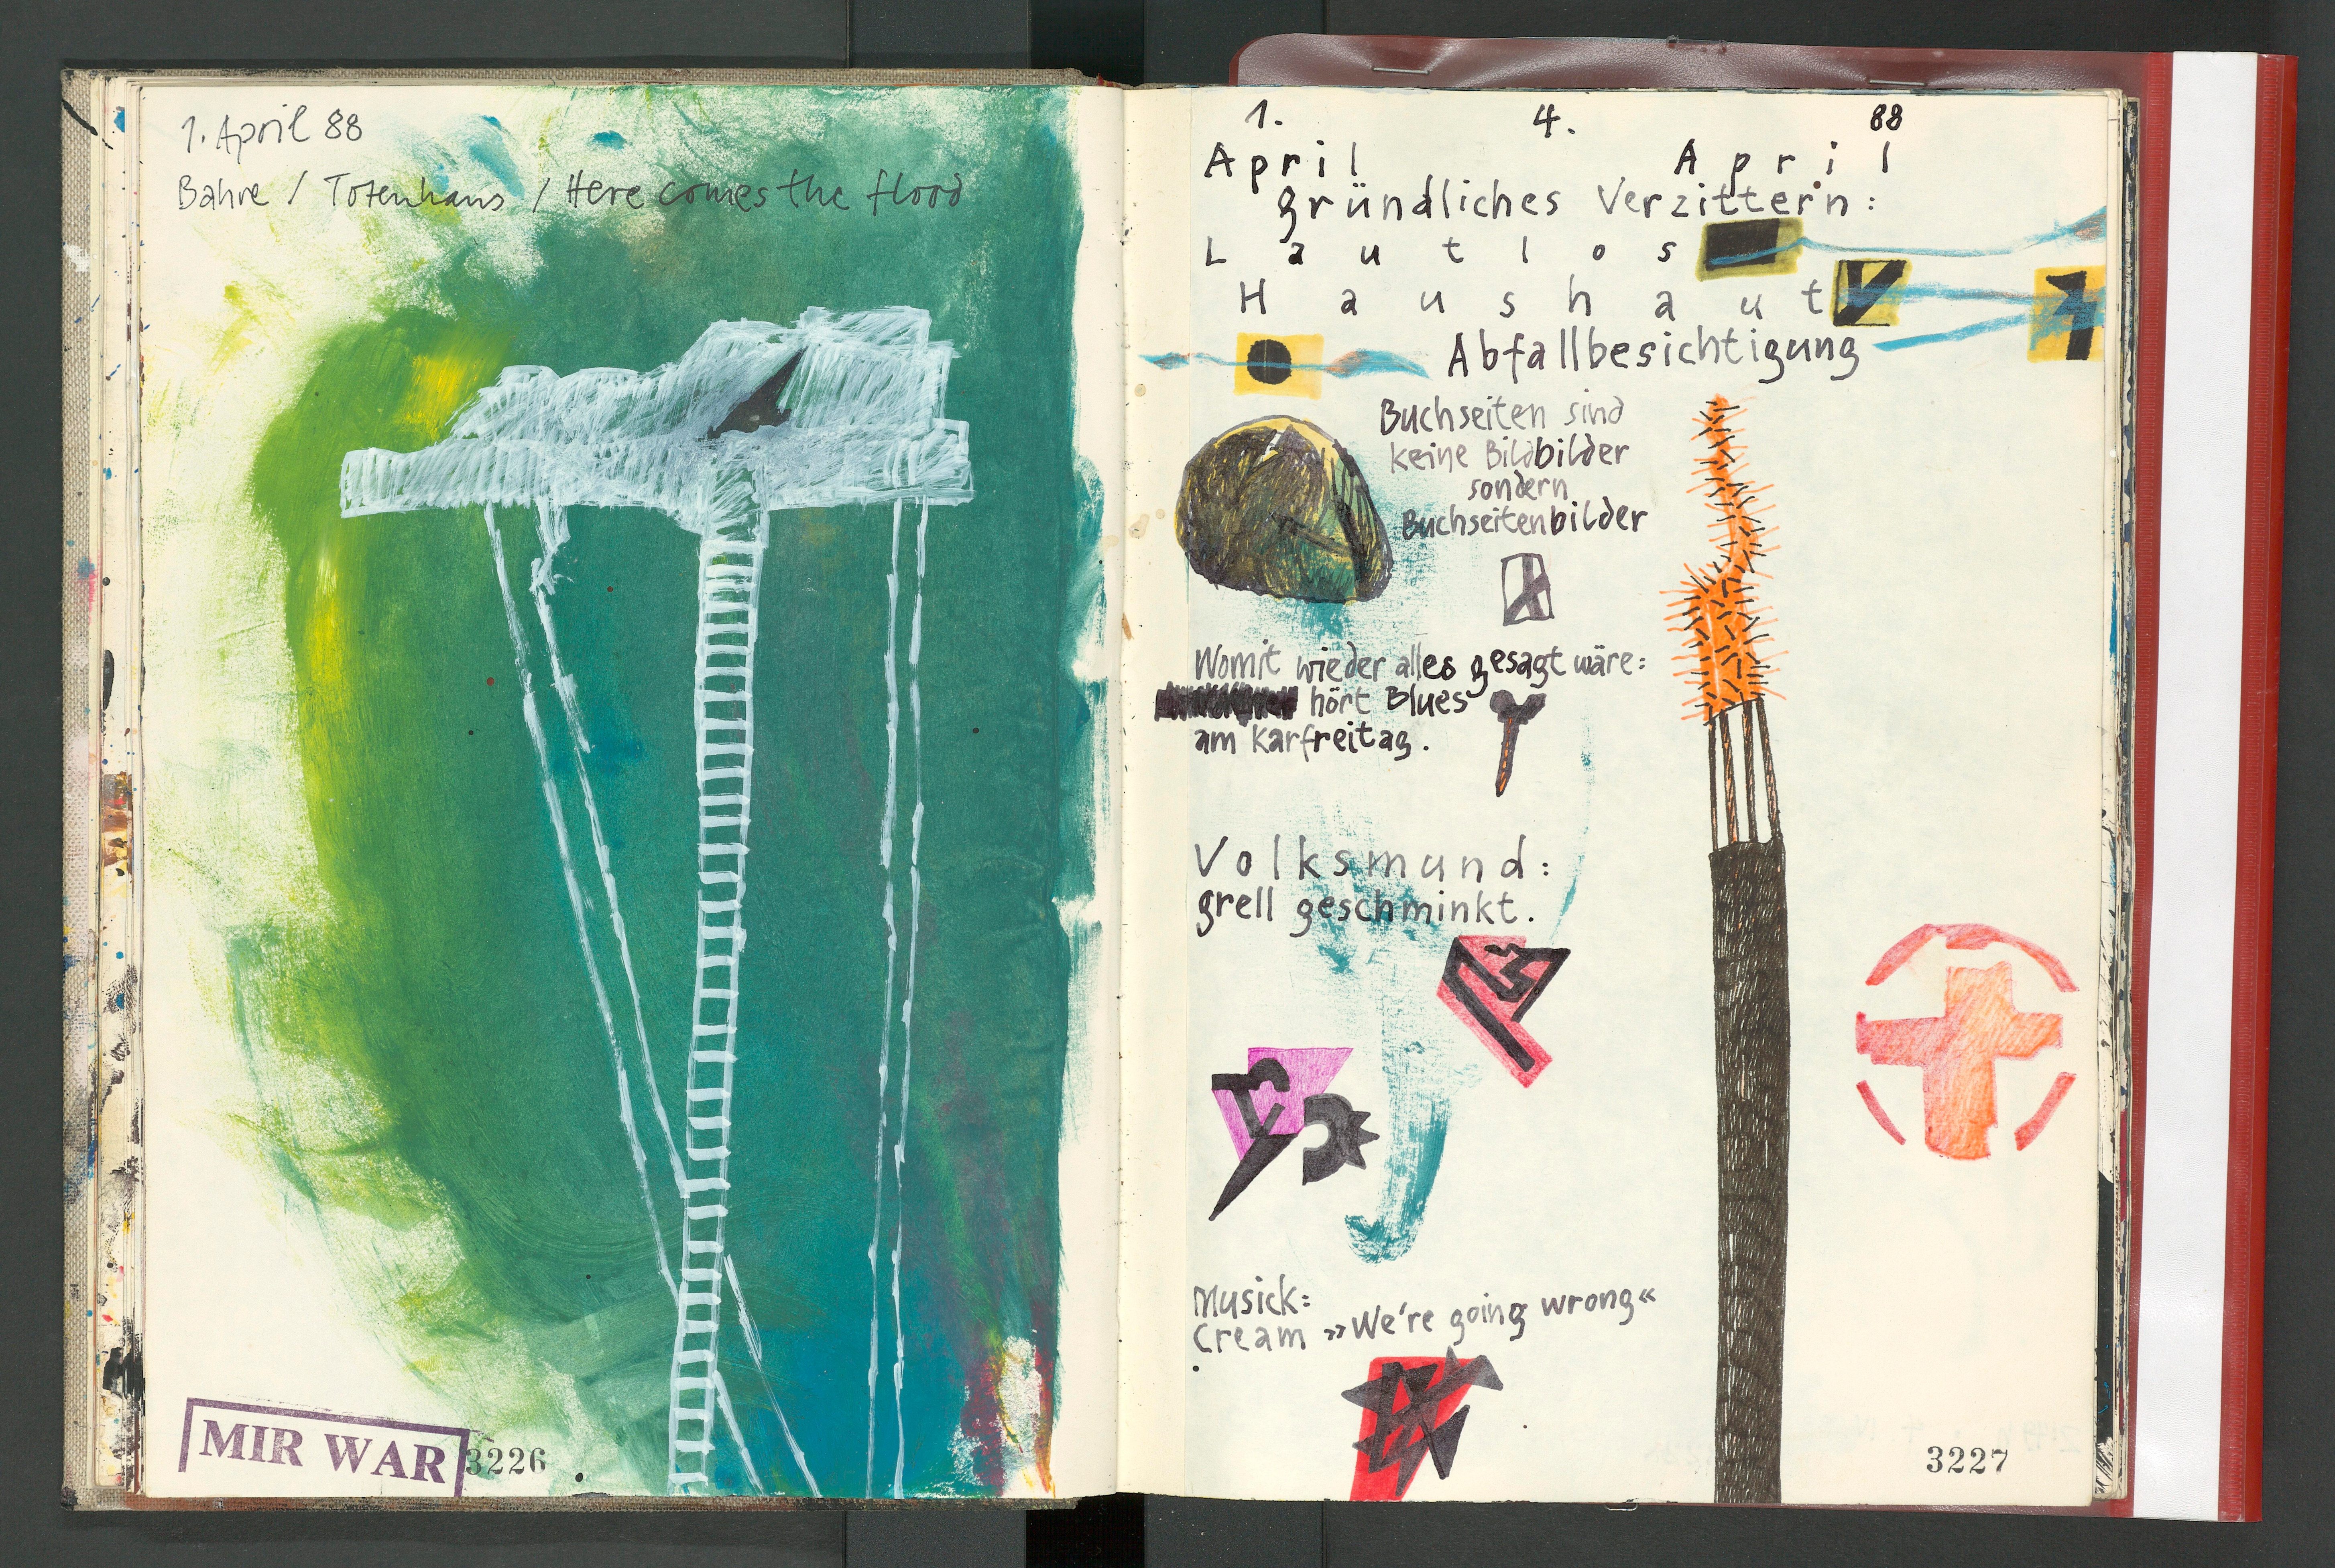 1. April 88
Bahre / Totenhaus / Here comes the flood
MIR WAR
3226
1. 4. 88
April April
gründliches Verzittern:
Lautlos
Haushaut
Abfallbesichtigung
Buchseiten sind
keine Bildbilder
sondern
Buchseitenbilder
Womit wieder alles gesagt wäre:
hört Blues
am Karfreitag.
Volksmund:
grell geschminkt.
Musick:
Cream »We're going wrong«
3227